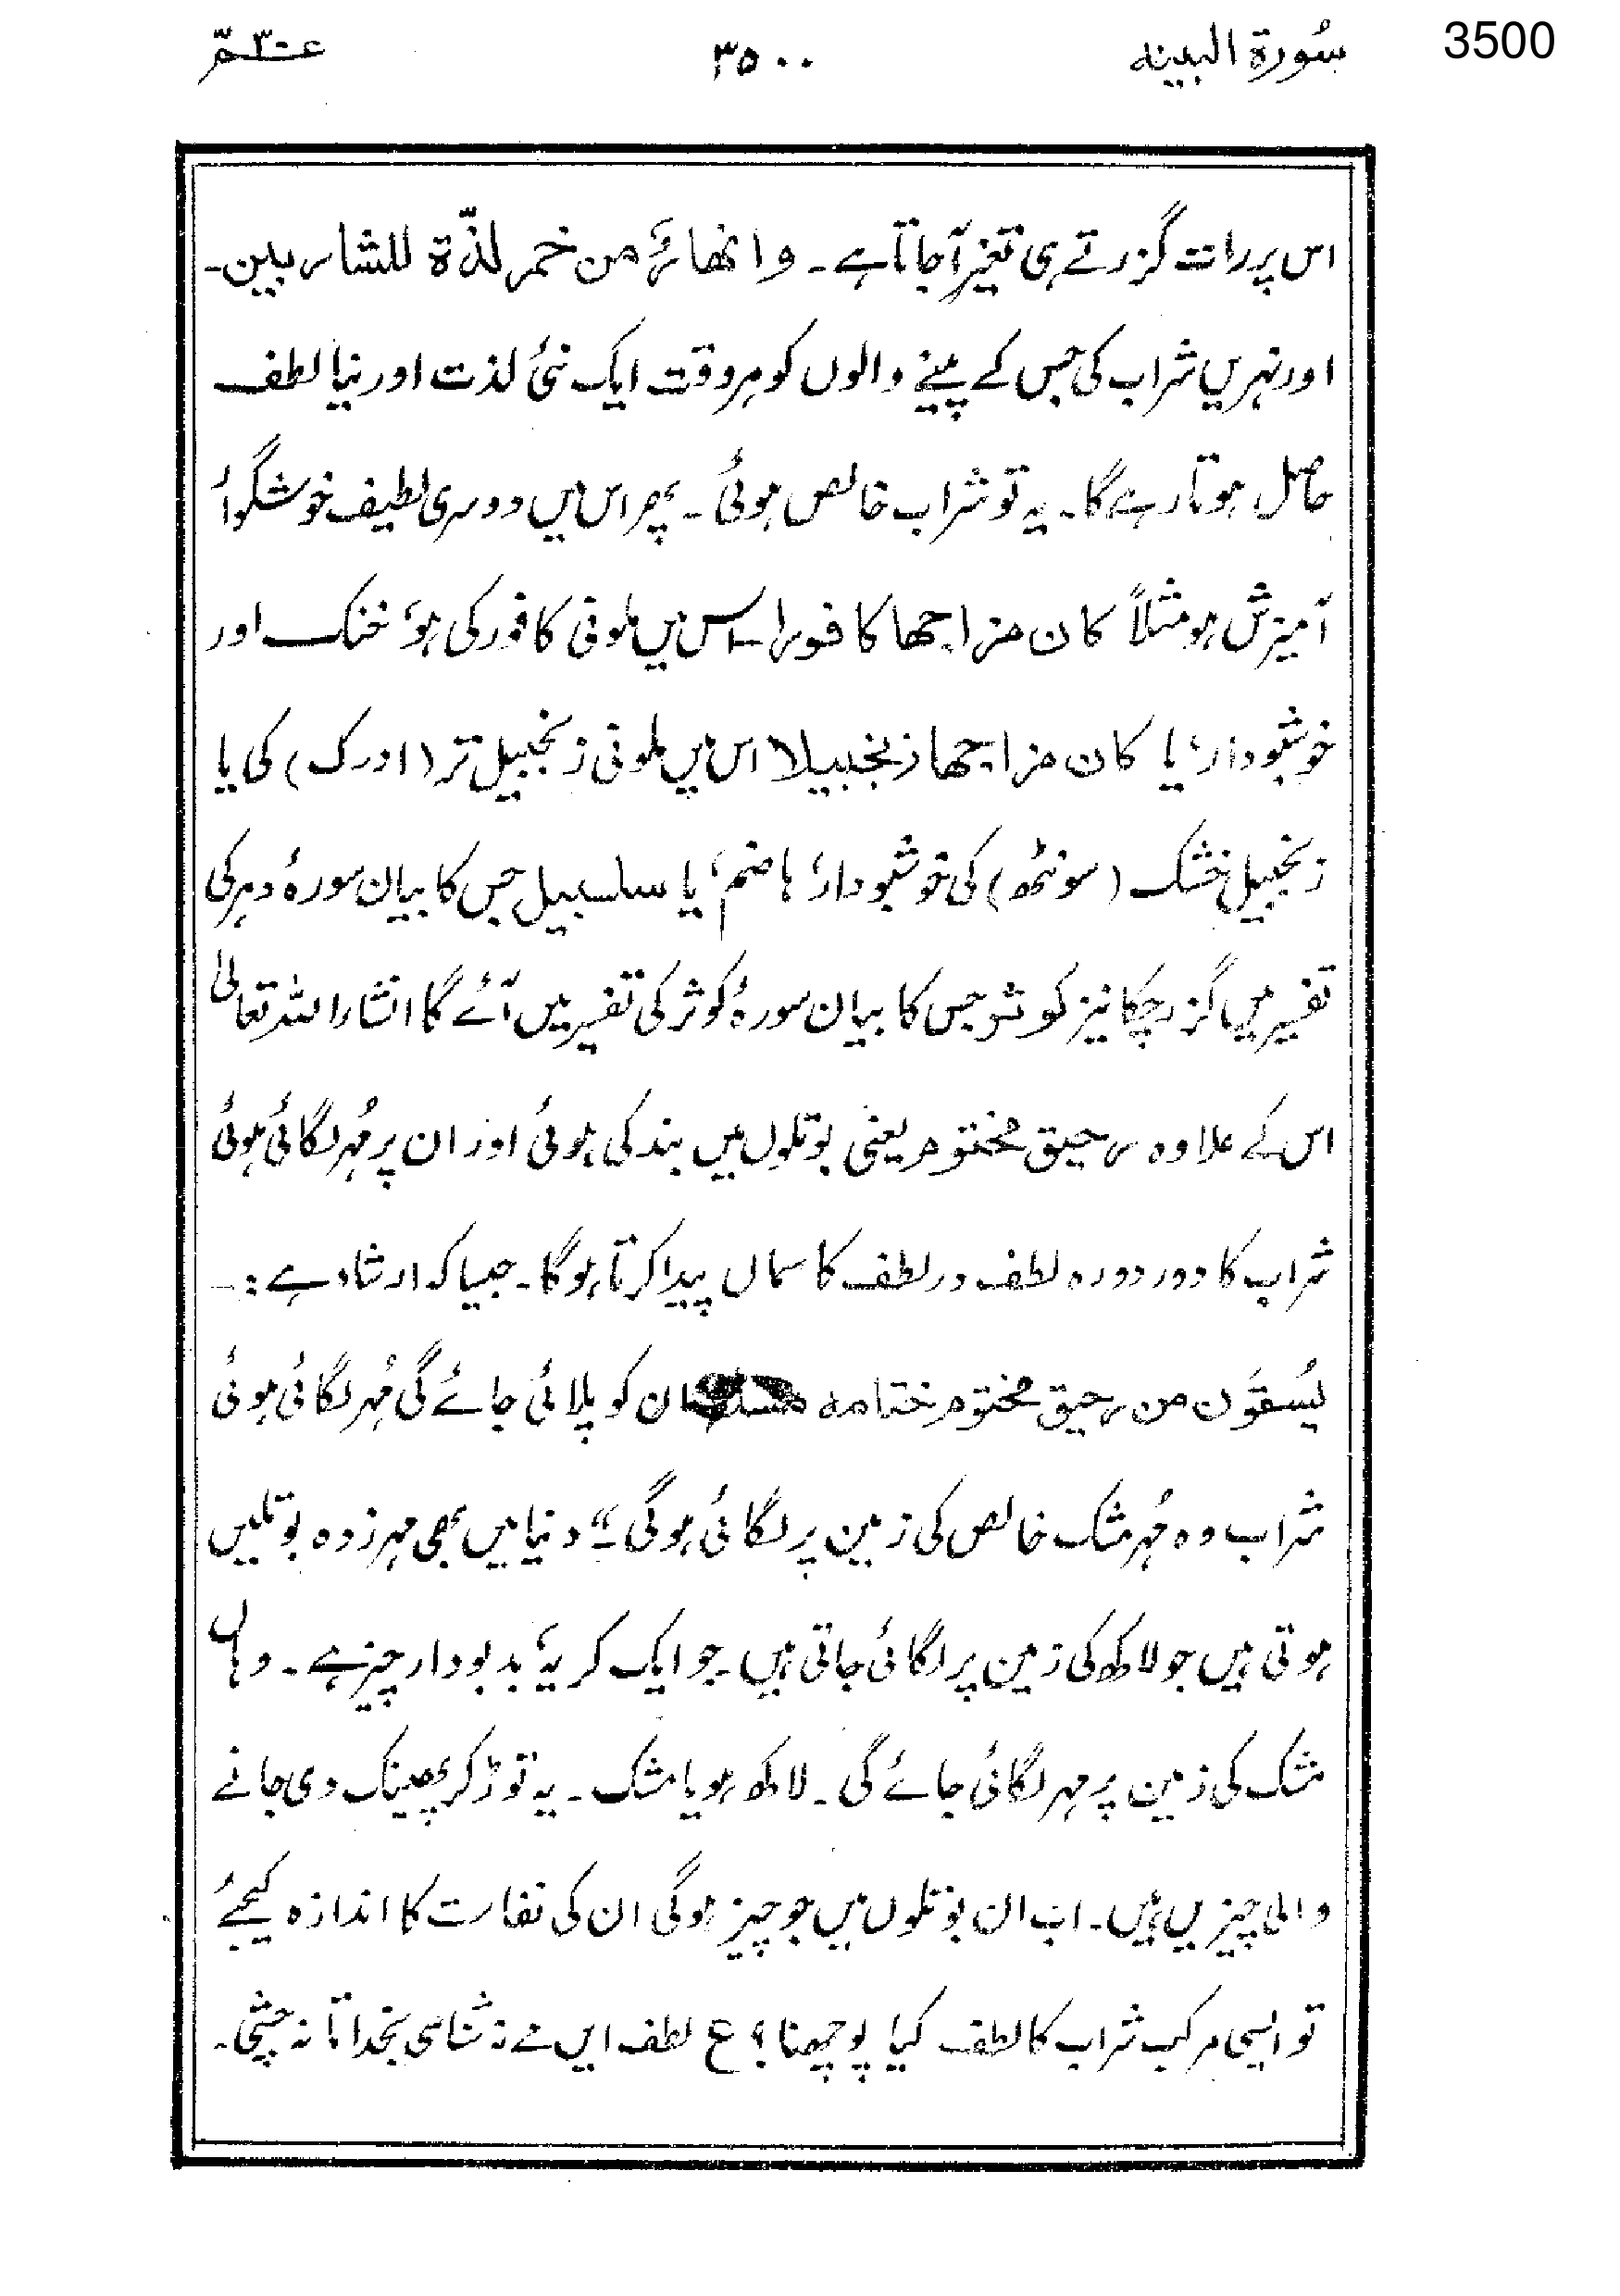 3500
سُورة البینه ۳۵۰۰ عم ۳۰
اس پر رات گزرتے ہی تغیر آجاتا ہے۔ وانھارٌ من خمر لذّة للشاربین۔
اور نہریں شراب کی جس کے پینے والوں کو ہر وقت ایک نئی لذت اور نیا لطف
حاصل ہوتا رہے گا۔ یہ تو شراب خالص ہوئی۔ پھر اس میں دوسری لطیف خوشگوار
آمیزش ہو مثلاً کان مزاجھا کافورا۔ اس میں ملونی کافور کی ہو، خنک اور
خوشبودار، یا کان مزاجھا زنجبیلا اس میں ملونی زنجبیل تر (ادرک) کی یا
زنجبیل خشک (سونٹھ) کی خوشبودار، ہاضم، یا سلسبیل جس کا بیان سورۂ دہر کی
تفسیر میں گزر چکا نیز کوثر جس کا بیان سورۂ کوثر کی تفسیر میں آئے گا انشاءاللہ تعالیٰ
اس کے علاوہ رحیق مختوم یعنی بوتلوں میں بند کی ہوئی اور ان پر مُہر لگائی ہوئی
شراب کا دور دورہ لطف در لطف کا سماں پیدا کرتا ہوگا۔ جیسا کہ ارشاد ہے :۔
یُسقَون من رحیق مختوم ختامه ان کو پلائی جائے گی مُہر لگائی ہوئی
شراب وہ مُہر مشک خالص کی زمین پر لگائی ہوگی"۔ دنیا میں بھی مہر زدہ بوتلیں
ہوتی ہیں جو لاکھ کی زمین پر لگائی جاتی ہیں۔ جو ایک کریہہ، بدبودار چیز ہے۔ وہاں
مشک کی زمین پر مہر لگائی جائے گی۔ لاکھ ہو یا مشک۔ یہ توڑ کر پھینک دی جانے
والی چیزیں ہیں۔ اب ان بوتلوں میں جو چیز ہوگی ان کی نفارت کا اندازہ کیجئے
تو ایسی مرکب شراب کا لطف کیا پوچھنا؟ ع لطف ایں مے نہ شناسی بخدا تا نہ چشی۔